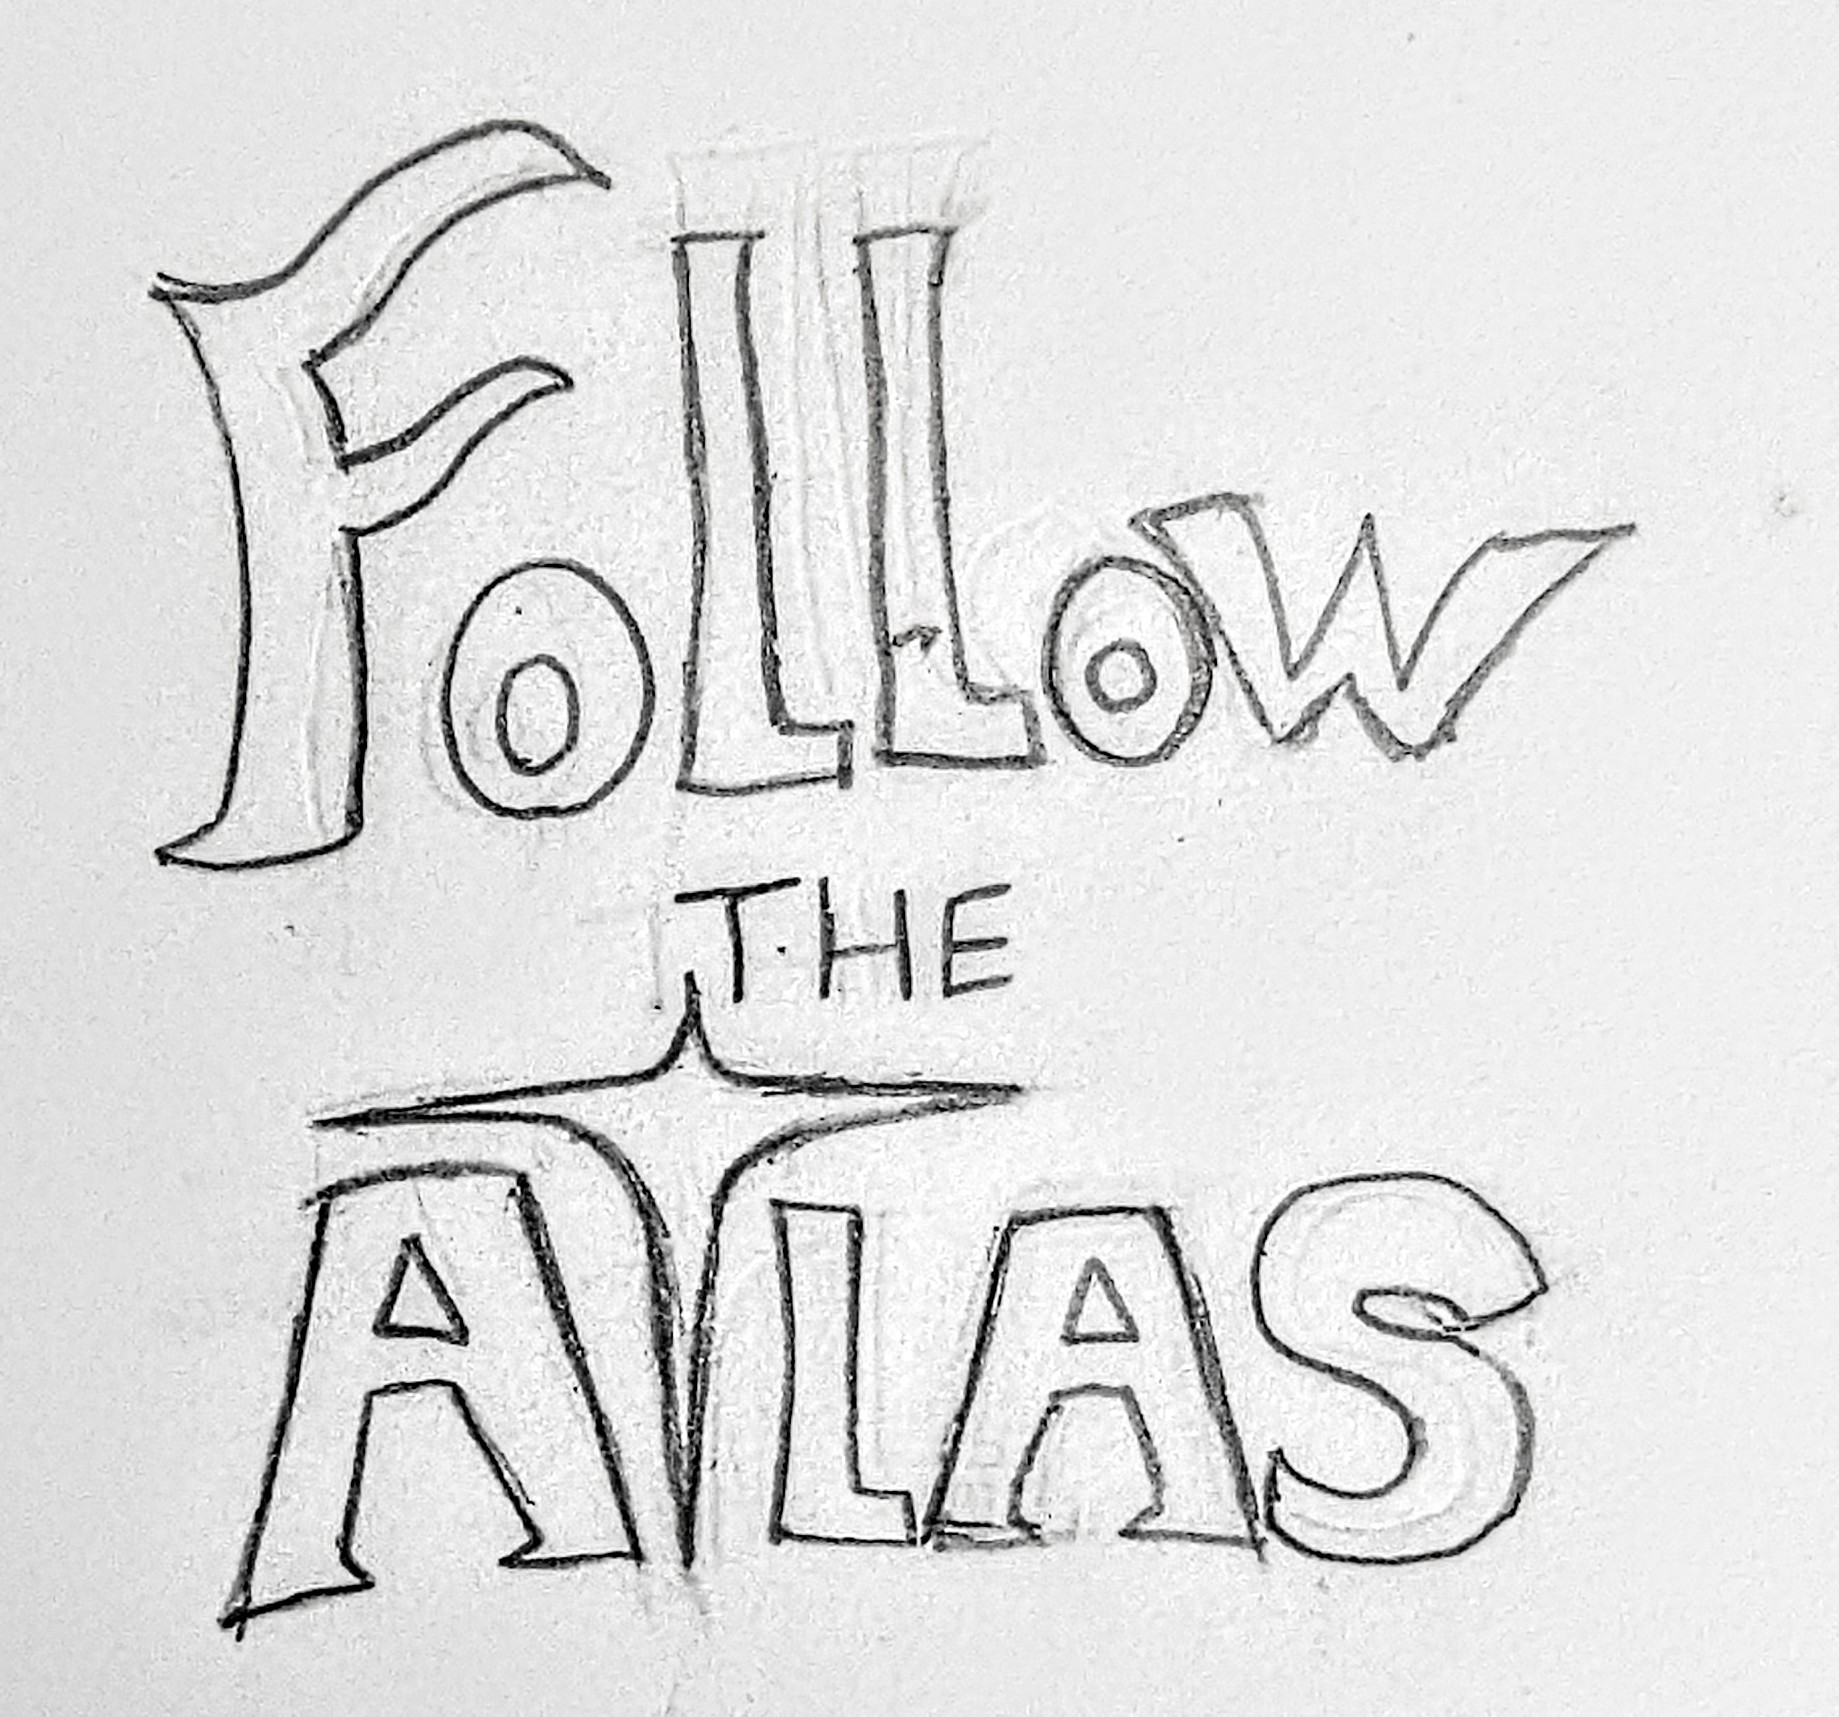 Follow
THE
ATLAS